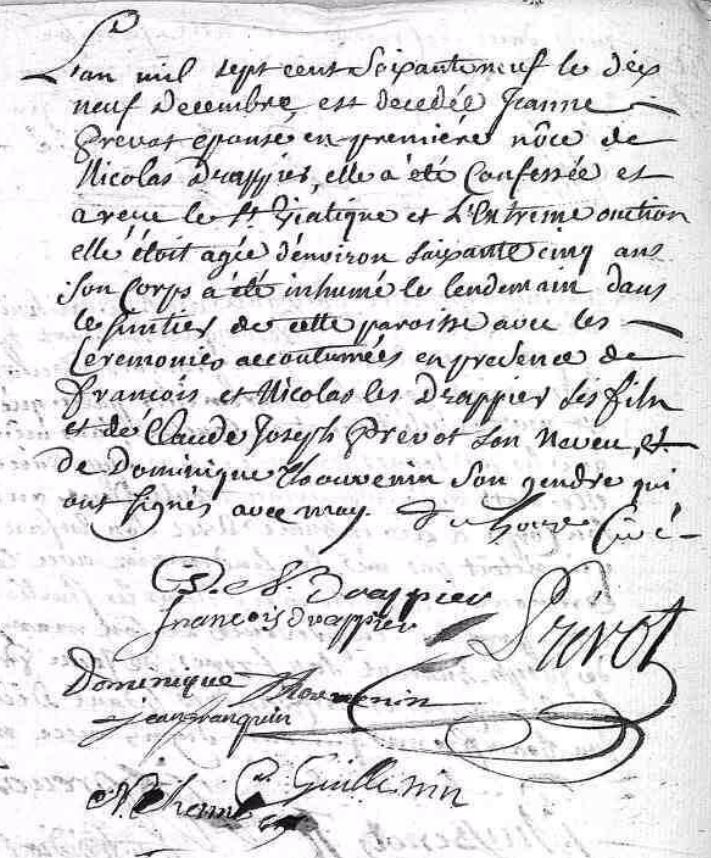 L'an mil sept cent soixante neuf le dix
neuf decembre, est decedée Jeanne
Prevot epouse en première nôce de
Nicolas Drappier, elle a été Confessée et
a reçue le St. Viatique et L'Extreme onction
elle étoit agée d'environ soixante cinq ans
son Corps a été inhumé le lendemain dans
le cimtier de cette paroisse avec les
Ceremonies accoutumées en presence de
françois et Nicolas les Drappier ses fils
et de Claude Joseph Prevot son neveu, et
de Dominique Thouvenin son gendre qui
ont signés avec moy. Curé
N. Drappier
francois drappier
Prevot
Dominique Thouvenin
jean franquin
C. Guillemin